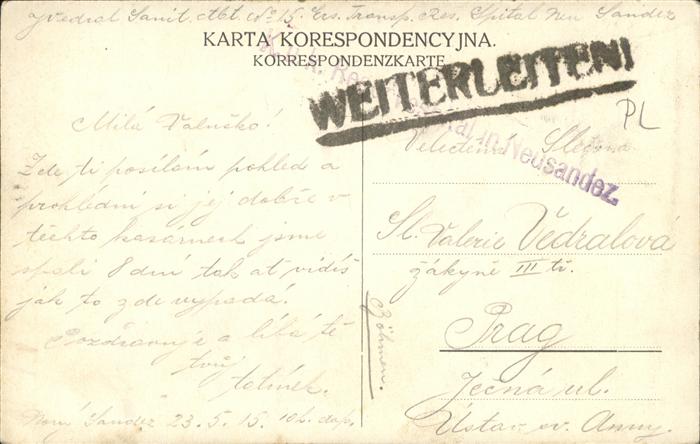 Vedral Sanit. Abt. No 15. Ers. Transp. Res. Spital Neu Sandez
KARTA KORESPONDENCYJNA.
KORRESPONDENZKARTE
WEITERLEITEN!
K.u.k. Res in Neusandez.
PL
Milá Valuško!
Zde ti posílám pohled a
prohlédni si jej dobře v
těchto kasárnech jsme
spali 8 dní tak ať vidíš
jak to zde vypadá.
Pozdravuje a líbá tě
tvůj
tatínek.
Nový Sandez 23.5.15. 10h. dop.
Velectěná Slečna
Sl. Valerie Vedralová
žákyně III tř.
Prag
Ječná ul.
Ústav sv. Anny.
Böhmen.